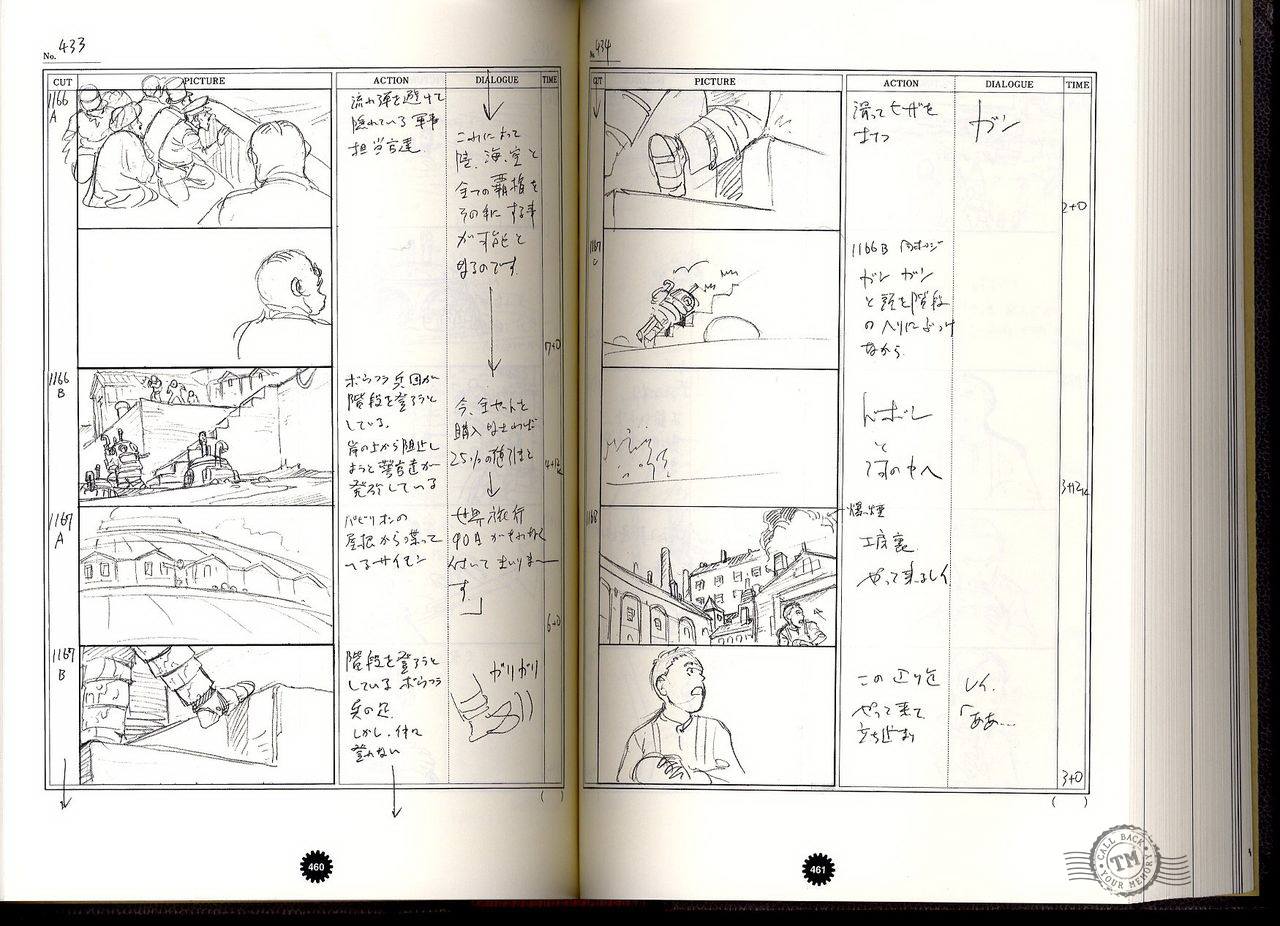 No. 433
CUT PICTURE ACTION DIALOGUE TIME
1166
A
流れ弾を避けて
隠れている軍事
担当官達
これによって
陸、海、空と
全ての覇権を
その手にする事
が可能と
なるのです。
7+0
1166
B
階段を登ろうと
している。
岸の上から阻止し
ようと警官達が
発砲している
今、全セットを
購入なされば
25%の値引きと
1167
A
パビリオンの
屋根から喋って
いるサイモン
世界旅行
付いてまいりまー
す。」
6+0
1167
B
階段を登ろうと
している
兵の足。
しかし、
登れない
ガリガリ
460
No. 434
CUT PICTURE ACTION DIALOGUE TIME
滑ってヒザを
打つ
ガン
2+0
1167
C
1166B 同ポジ
ガン ガン
と頭を階段
のヘリにぶつけ
ながら
と
河の中へ
1168
爆煙
工房裏
やって来るレイ
この辺りを
やって来て
立ち止まり
レイ.
「ああ…
3+0
461
CALL BACK
TM
YOUR MEMORY